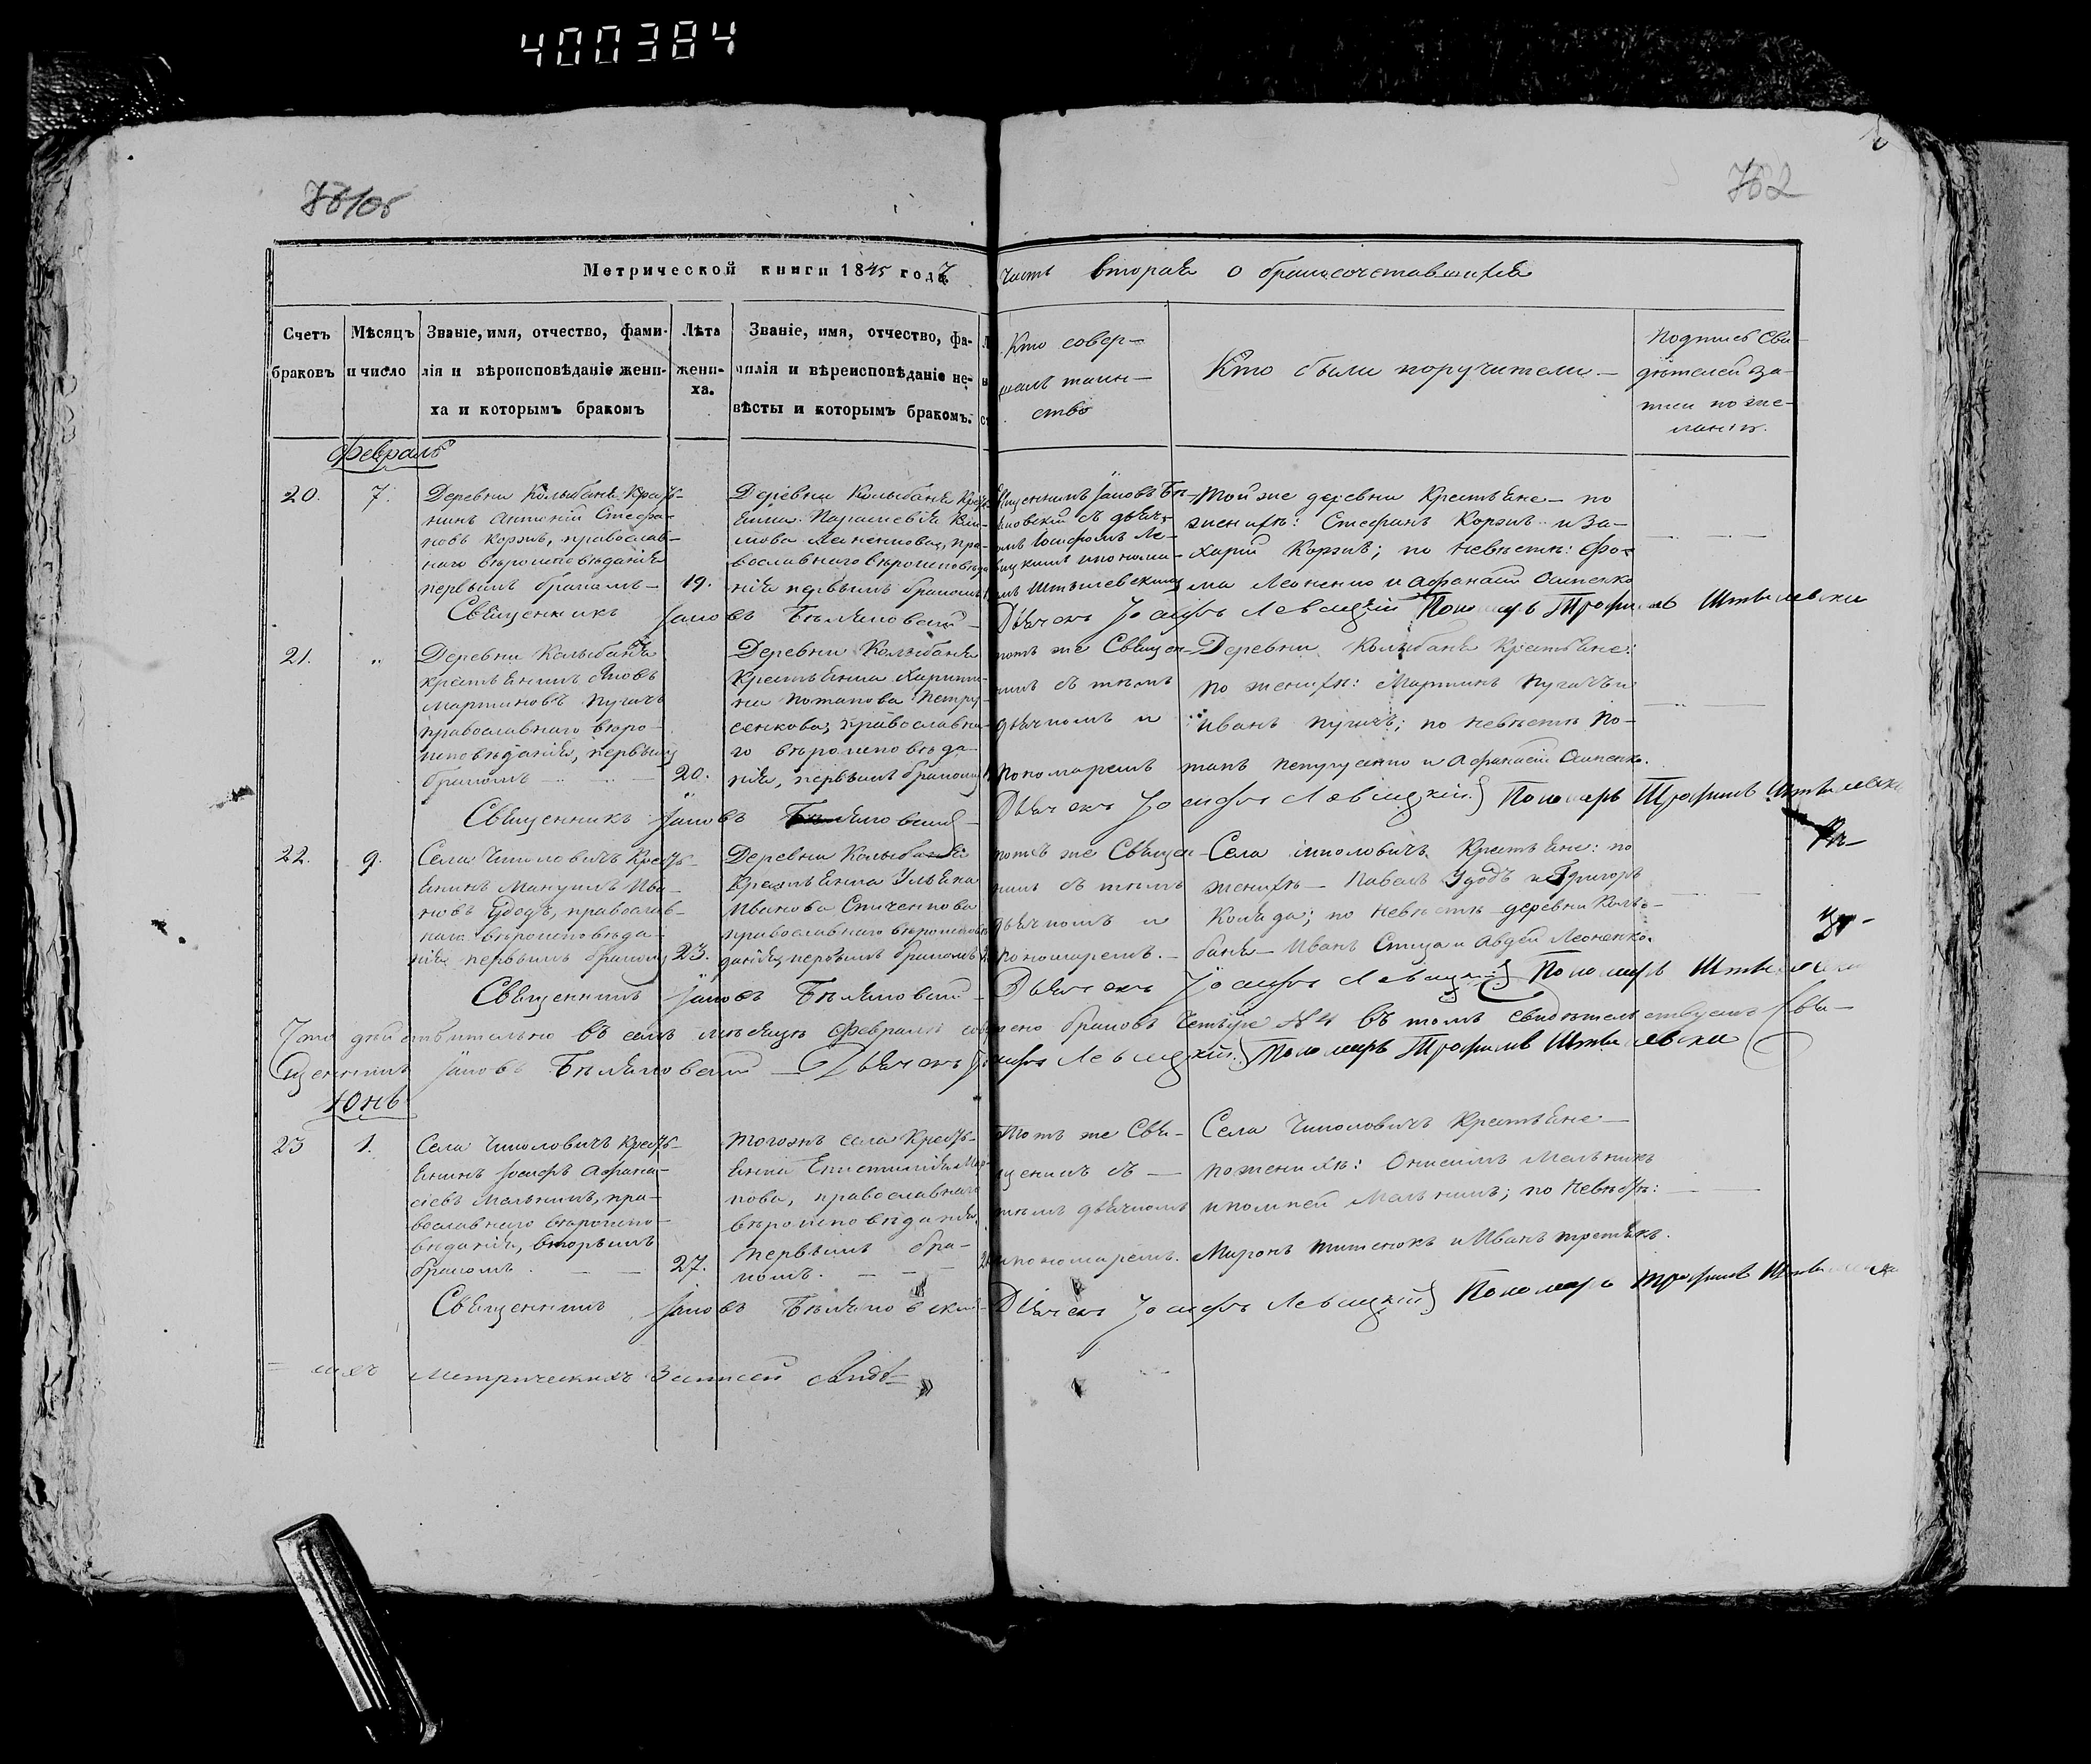 400384
762
Метрической книги 1845 года
часть вторая о бракосочетавшихся
Счетъ браковъ
Мѣсяцъ и число
Званіе, имя, отчество, фами-
лія и вѣроисповѣданіе жени-
ха и которымъ бракомъ
Лѣта
жени-
ха.
Званіе, имя, отчество, фа-
милія и вѣреисповѣданіе не-
вѣсты и которымъ бракомъ.
Кто совер-
шалъ таин-
ство
Кто были поручители.
Подпись Сви-
дѣтелей за-
писи по же-
ланію.
Февраль
20.
7.
Деревни Колыбаня Кресть-
янинъ Антоній Стефа-
новъ Коржъ, православ-
наго вѣроисповѣданія
первымъ бракомъ
19.
Деревни Колыбаня Кресть
янка Параскевія Кли-
мова Леоненкова, пра-
вославнаго вѣроисповѣда
нія первымъ бракомъ
Священникъ Іаковъ Бѣ-
ляновскій съ дьяч-
комъ Іосифомъ Ле-
вицкимъ и понома-
Той же деревни Крестьяне по
женихѣ: Стефанъ Коржъ и За-
харій Коржъ; по невѣстѣ: Фо-
ма Леоненко и Афанасій Осипенко
Священникъ Іаковъ Бѣляновскій
Дьячекъ Іосифъ Левицкій Пономарь Трофимъ
21.
"
Деревни Колыбаня
крестьянинъ Яковъ
Мартиновъ Пугачъ
православнаго вѣро-
исповѣданія, первымъ
бракомъ
20.
Деревни Колыбаня
Крестьянка Харити-
на Потапова Петру-
сенкова, православна-
го вѣроисповѣда-
нія, первымъ бракомъ
тотъ же Священ-
никъ съ тѣмъ
дьячкомъ и
пономаремъ
Деревни Колыбаня Крестьяне:
по женихѣ: Мартинъ Пугачъ и
Иванъ Пугачъ; по невѣстѣ По-
тапъ Петрусенко и Афанасій Осипенко.
Священникъ Іаковъ Бѣляновскій
Дьячекъ Іосифъ Левицкій Пономарь Трофимъ
22.
9.
Села Чиколовичъ Кресть-
янинъ Мануилъ Ива-
новъ Удодъ, православ-
наго вѣроисповѣда-
нія первымъ бракомъ
23.
Деревни Колыбаня
Крестьянка Ульяна
Иванова
православнаго вѣроисповѣ
данія, первымъ бракомъ
тотъ же Священ-
никъ съ тѣмъ
дьячкомъ и
пономаремъ.
Села Чиколовичъ Крестьяне: по
женихѣ Павелъ Удодъ и Григорь
Коляда; по невѣстѣ деревни Колы-
баня Иванъ и Авдей Леоненко.
Священникъ Іаковъ Бѣляновскій
Дьячекъ Іосифъ Левицкій Пономарь
Что дѣйствительно въ семъ мѣсяцѣ Февралѣ браковъ четыре № 4 въ томъ свидѣтельствуемъ Свя-
щенникъ Іаковъ Бѣляновскій Дьячекъ Іосифъ Левицкій Пономарь Трофимъ
Юнь
23
1.
Села Чиколовичъ Кресть-
янинъ Іосифъ Афана-
сіевъ Мельникъ, пра-
вославнаго вѣроиспо-
вѣданія, вторымъ
бракомъ
27.
Тогожъ села Кресть-
янка Епистимія Мар-
кова, православнаго
вѣроисповѣданія,
первымъ бра-
комъ.
Тотъ же Свя-
щеникъ съ
тѣмъ дьячкомъ
и пономаремъ.
Села Чиколовичъ Крестьяне
по женихѣ: Онисимъ Мельникъ
Мельникъ; по невѣстѣ:
Миронъ Титенокъ и Иванъ Третьякъ.
Священникъ Іаковъ Бѣляновскій
Дьячекъ Іосифъ Левицкій Пономарь Трофимъ
метрическихъ Записей